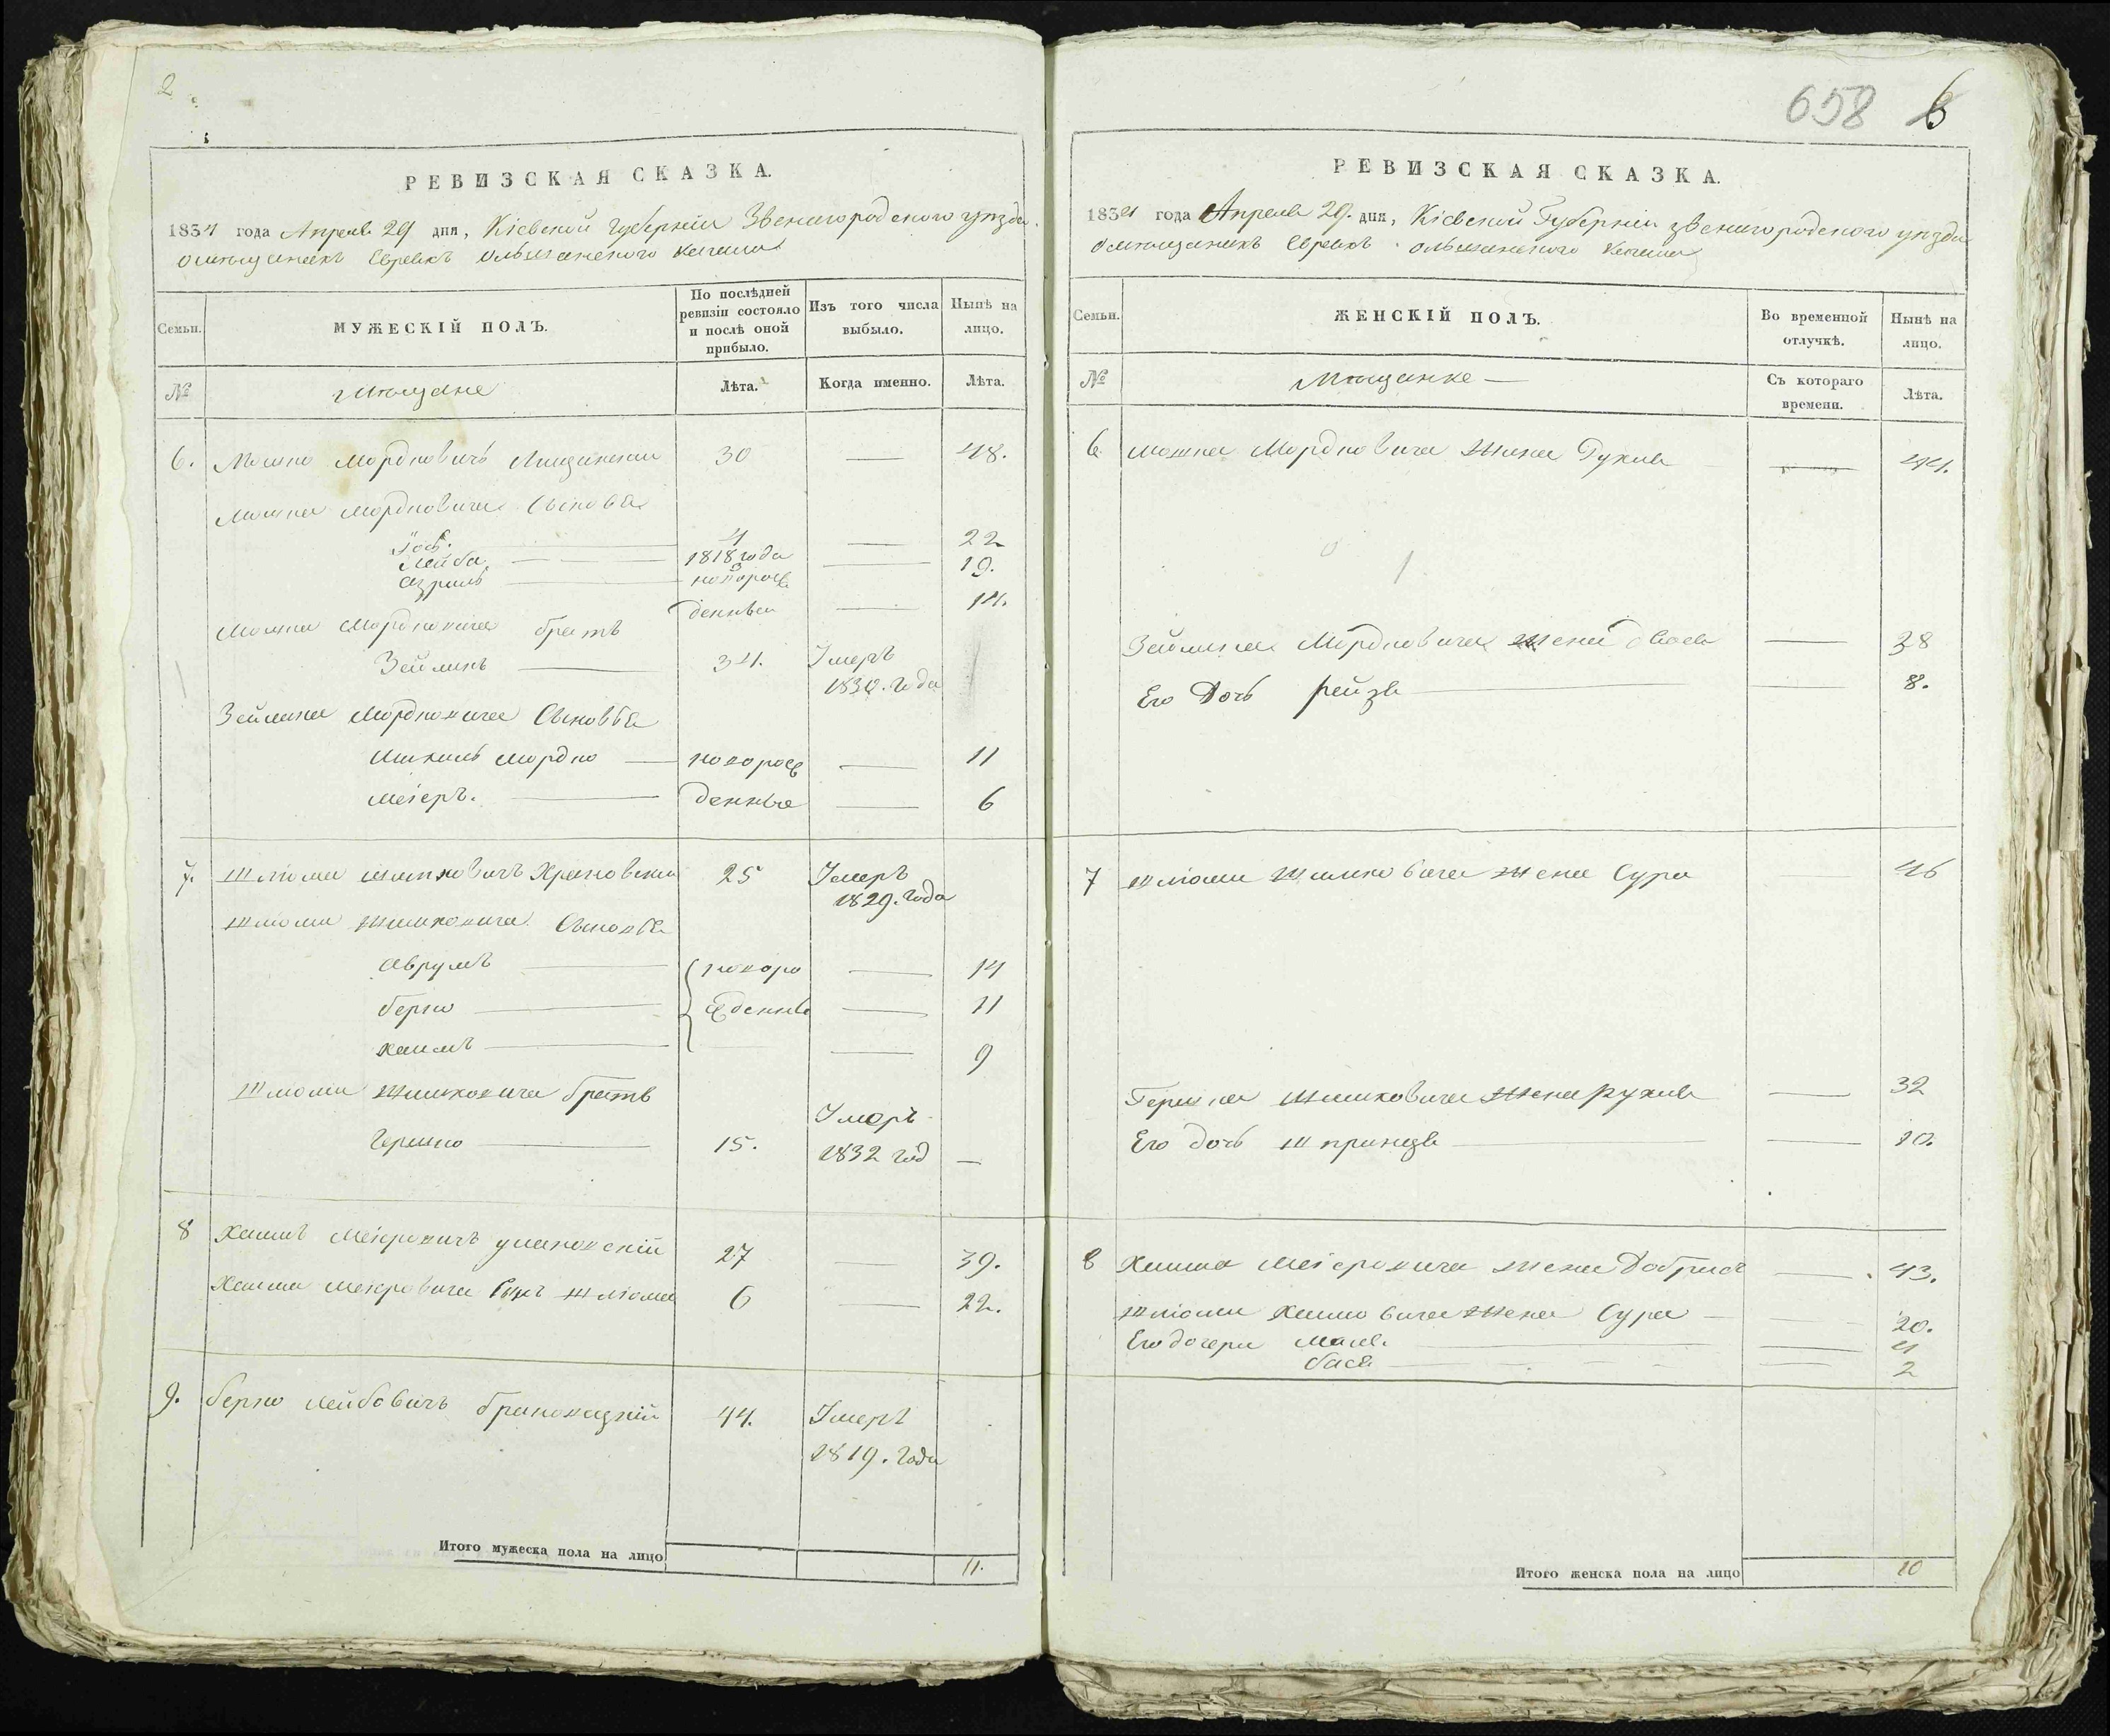 2
РЕВИЗСКАЯ СКАЗКА.
1834 года Апреля 29 дня, Кіевской Губерніи Звенигородского уезда
о мещанахъ Евреяхъ Ольшанского Кагала
Семьи.
МУЖЕСКІЙ ПОЛЪ.
По послѣдней ревизіи состояло и послѣ оной прибыло.
Изъ того числа выбыло.
Нынѣ на лицо.
№
Мещане
Лѣта.
Когда именно.
Лѣта.
6. Мошко Мордковичъ 30 — 48.
Мошка Мордковича Сыновья
Іось. 4 — 22
Лейба 1818 года — 19.
Азриль новорож
денные — 14.
Мошка Мордковича братъ
Зейликъ 34. Умеръ
1830. года
Зейлика Мордковича Сыновья
Мордко новорож — 11
Меіеръ. денные — 6
7. Шліома Шмиковичъ Храновский 25 Умеръ
1829. года
Шліомы Шмиковича Сыновья
Аврумъ новоро — 14
Берко жденные — 11
Хаимъ — 9
Шліомы Шмиковича братъ
Умеръ
Гершко 15. 1832 год —
8 Хаимъ Меіеровичъ Уманский 27 — 39.
Хаима Меіеровича Сынъ Шліома 6 — 22.
9. Берко Лейбовичъ 44. Умеръ
1819. года
Итого мужеска пола на лицо 11.
658 6
РЕВИЗСКАЯ СКАЗКА.
1834 года Апреля 29. дня, Кіевской Губерніи Звенигородского уезда
о мещанахъ Евреяхъ Ольшанского Кагала
Семьи.
ЖЕНСКІЙ ПОЛЪ.
Во временной отлучкѣ.
Нынѣ на лицо.
№
Мещанки —
Съ котораго времени.
Лѣта.
6 Мошка Мордковича Жена — 44.
Зейлика Мордковича жена — 38
Его Дочь Рейзя — 8.
7 Шліомы Шмиковича жена Сура — 46
Гершка Шмиковича жена Рухля — 32
Его дочь Шпринця — 10.
8 Хаима Меіеровича жена Добрись — 43.
Шліомы Хаимовича жена Сура — 20.
Его дочери Маля — 4
Бася — 2
Итого женска пола на лицо 10